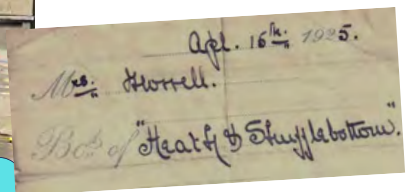 Apl. 16th. 1925.
Mrs. Howell.
Bot. of "Heath & Shufflebottom".